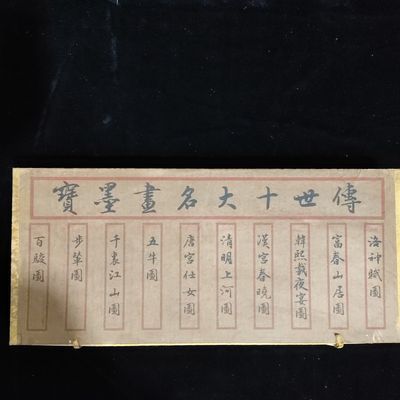 傳世十大名畫墨寶
洛神賦圖
富春山居圖
韓熙載夜宴圖
漢宮春曉圖
清明上河圖
唐宮仕女圖
五牛圖
千裏江山圖
步輦圖
百駿圖